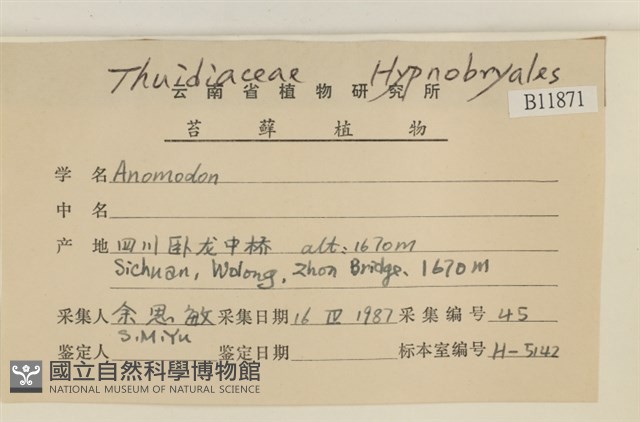 Thuidiaceae Hypnobryales
云南省植物研究所
B11871
苔藓植物
学名 Anomodon
中名
产地 四川卧龙中桥 alt: 1670m
Sichuan, Wolong, Zhon Bridge. 1670m
采集人 余思敏 采集日期 16 IV 1987 采集编号 45
S.M.Yu
鉴定人 鉴定日期 标本室编号 H-5142
國立自然科學博物館
NATIONAL MUSEUM OF NATURAL SCIENCE